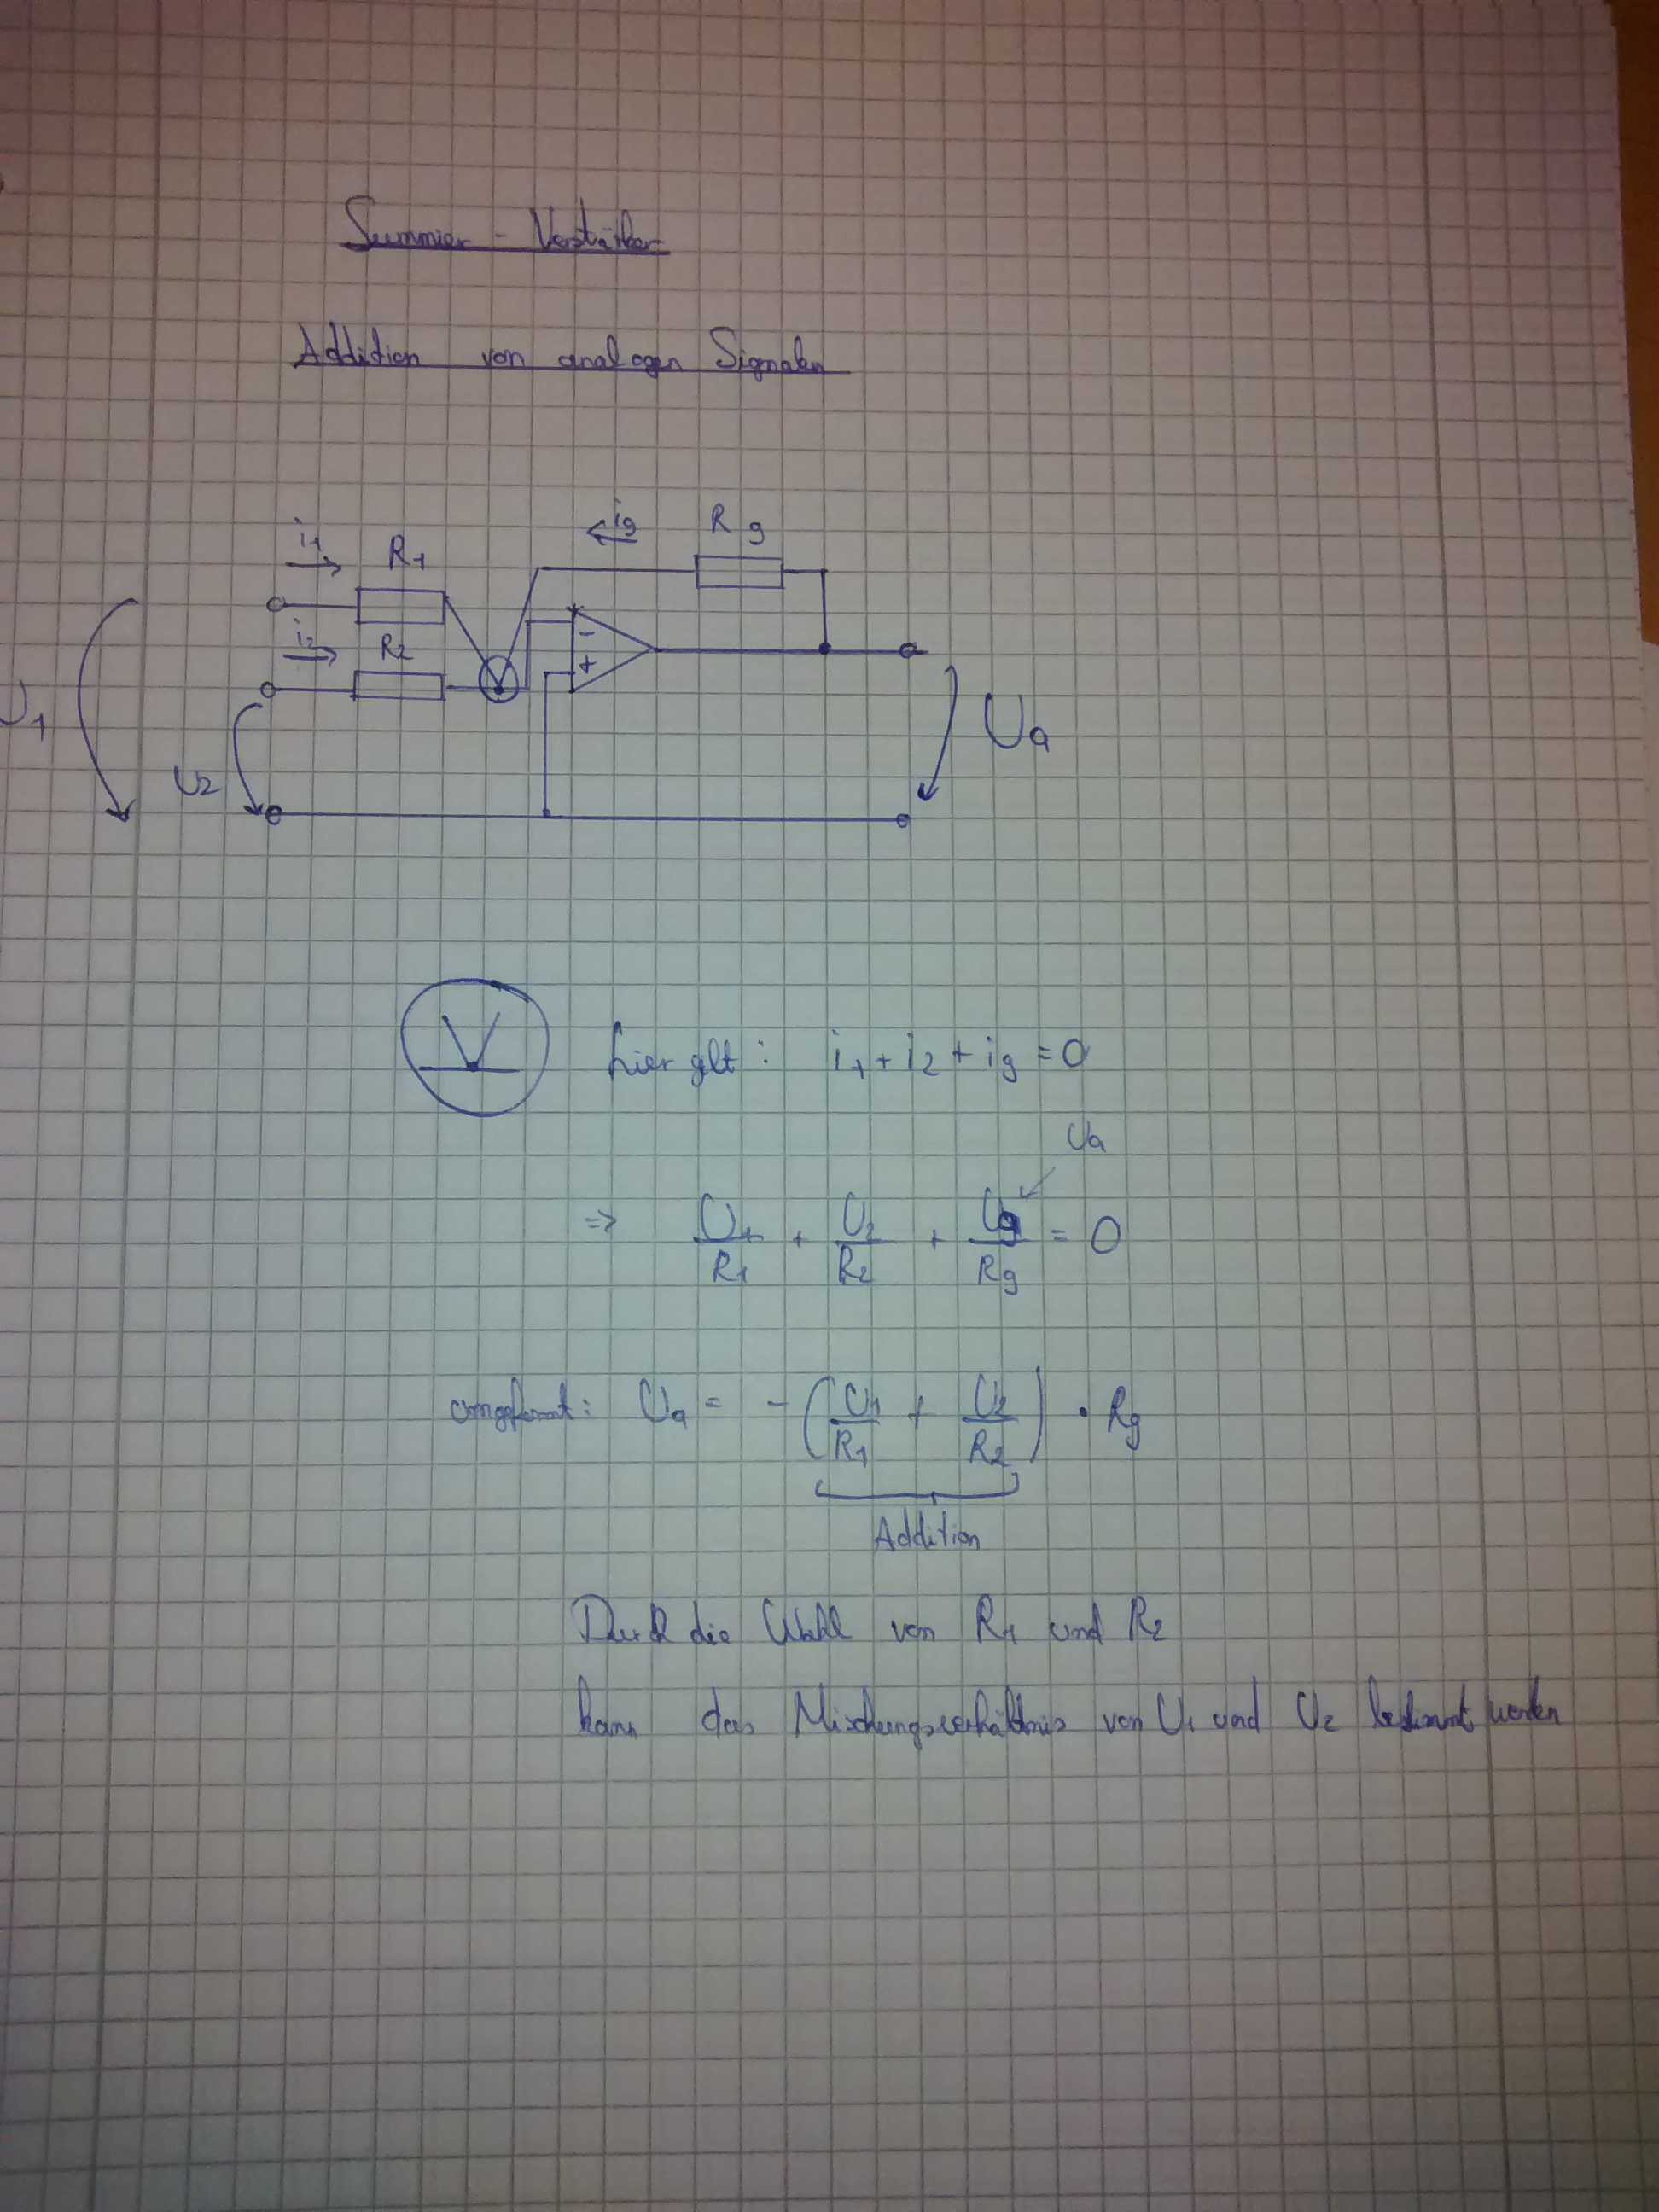 Summier - Verstärker
Addition von analogen Signalen
i1 R1 ig Rg
i2 R2 - +
U1 U2 Ua
hier gilt: i1 + i2 + ig = 0
Ua
=> U1/R1 + U2/R2 + Ug/Rg = 0
umgeformt: Ua = - (U1/R1 + U2/R2) · Rg
Addition
Durch die Wahl von R1 und R2
kann das Mischungsverhältnis von U1 und U2 bestimmt werden